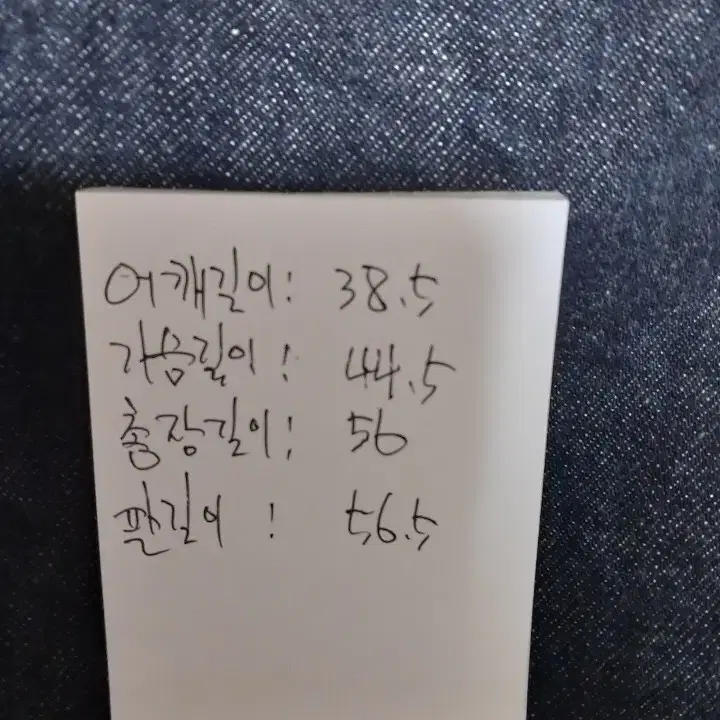 어깨길이: 38.5
가슴길이: 44.5
총장길이: 56
팔길이: 56.5